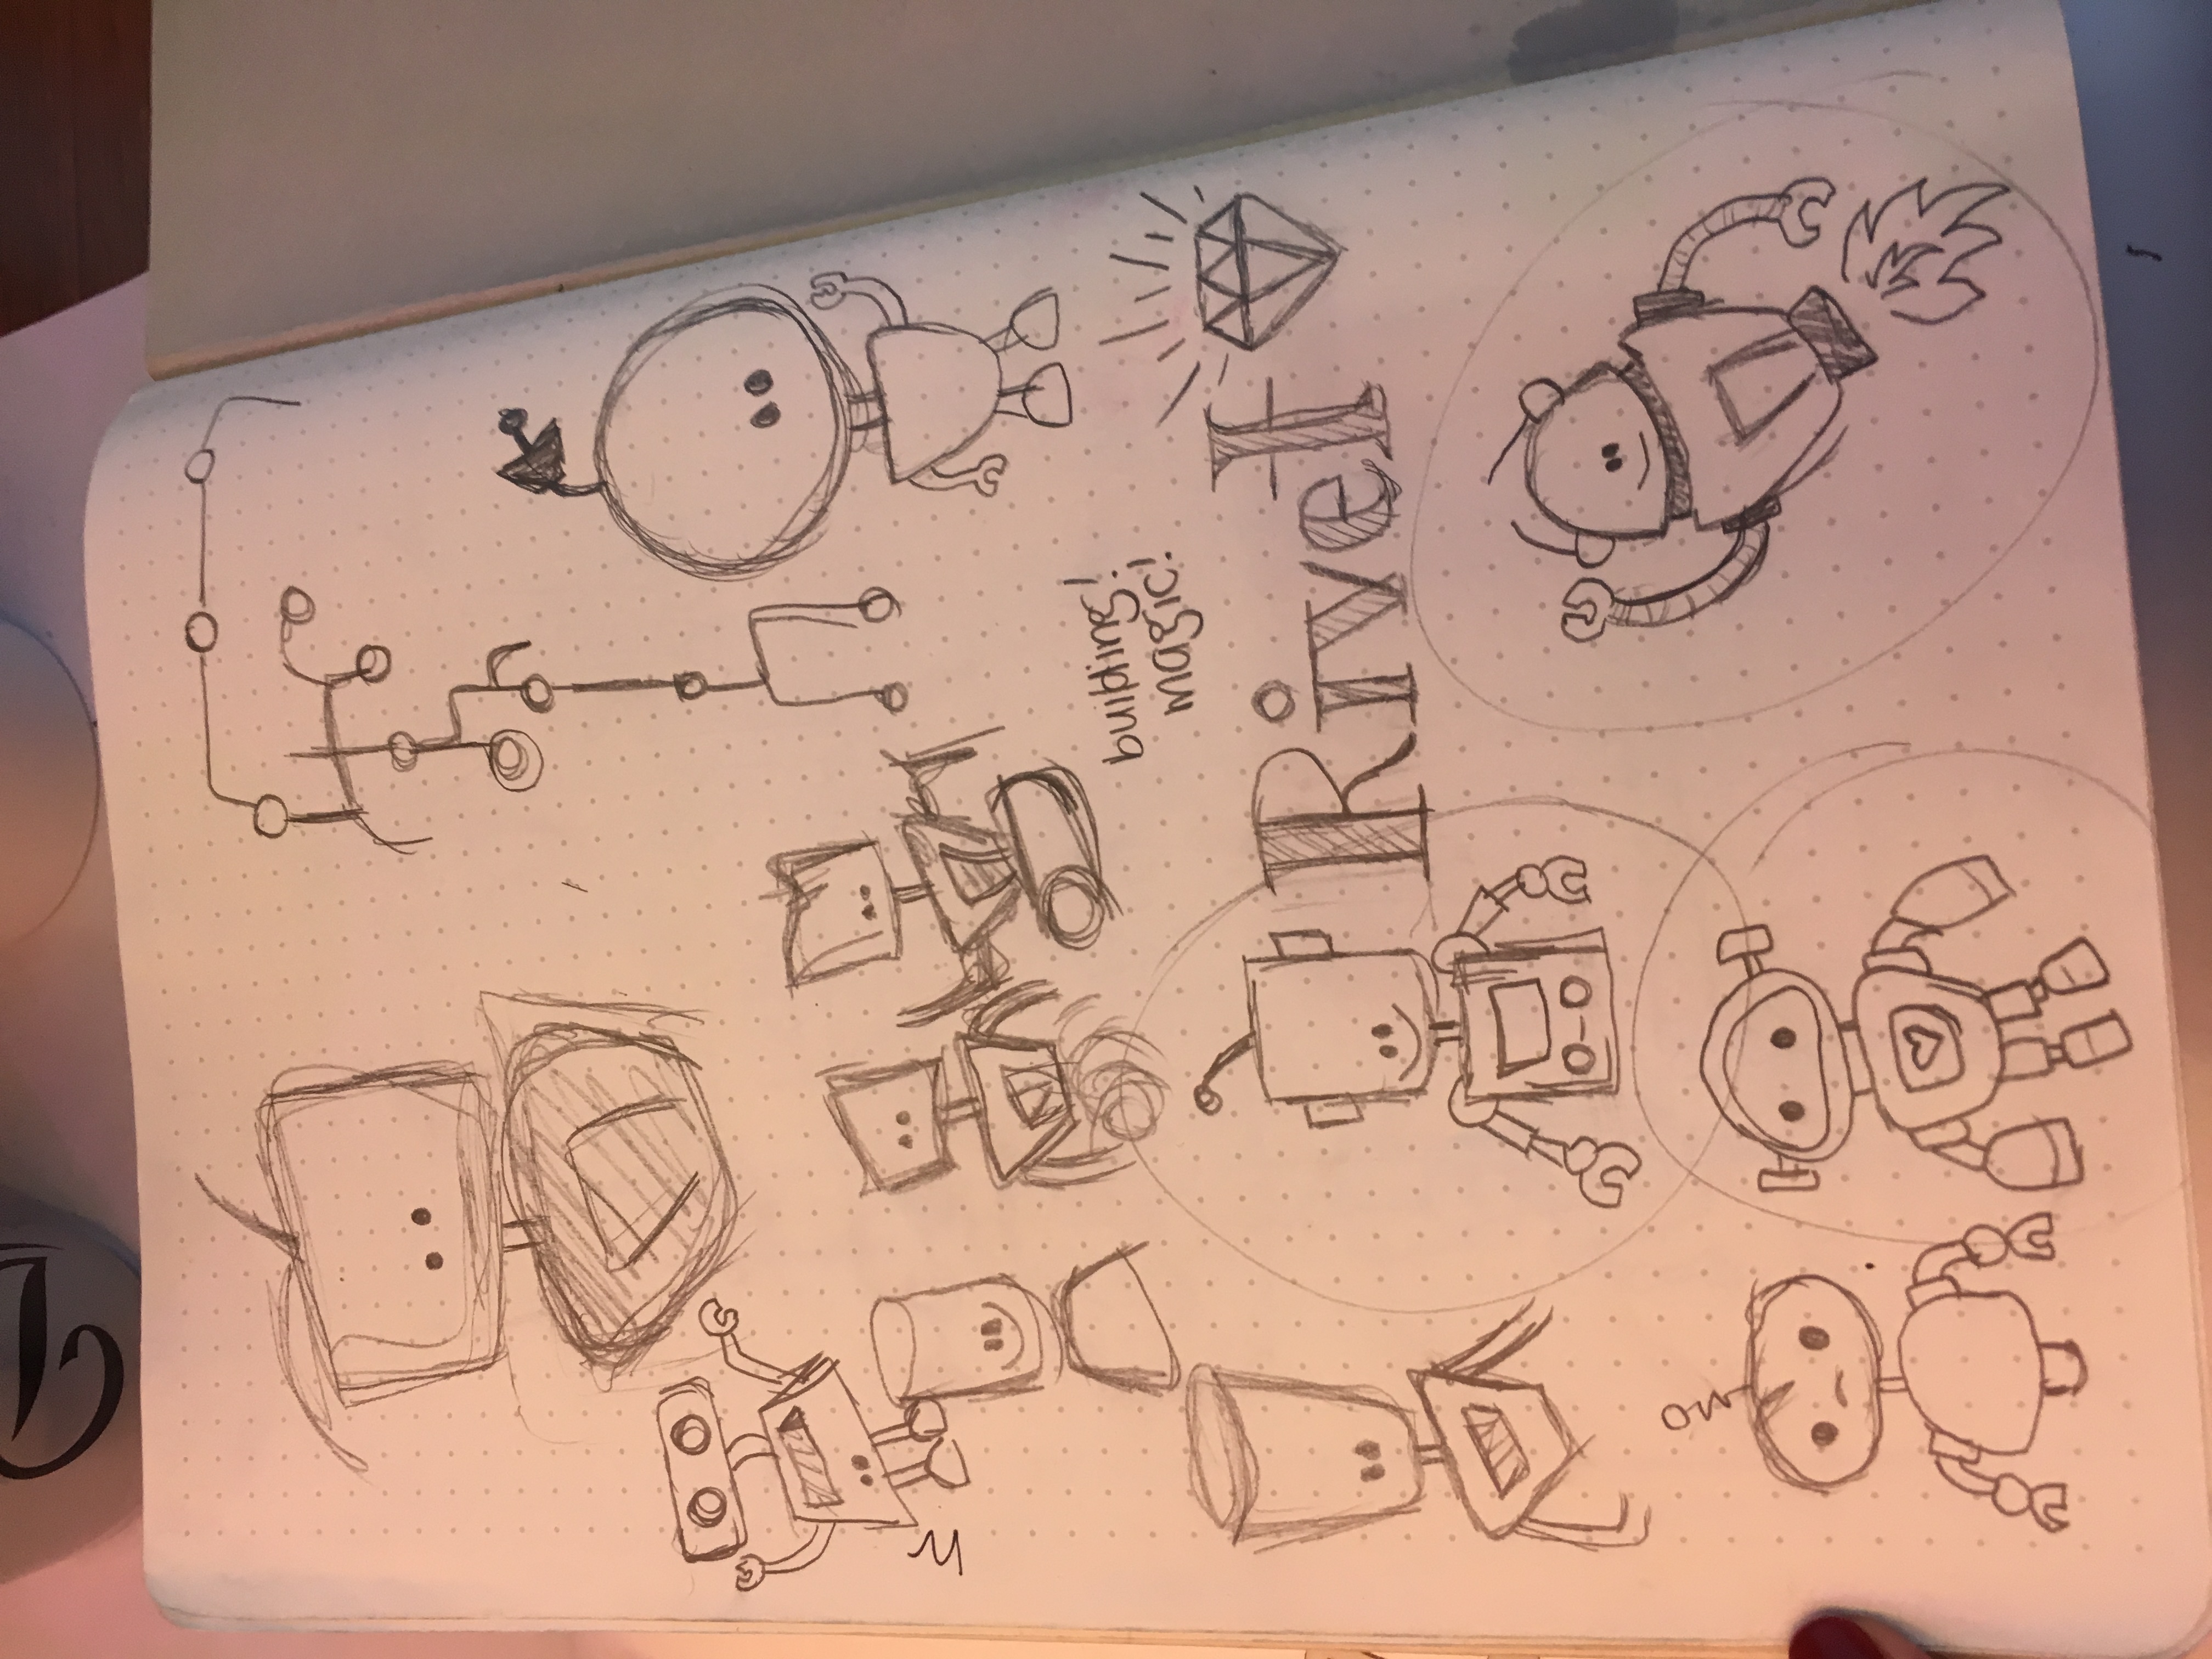 building!
magic!
Rivet